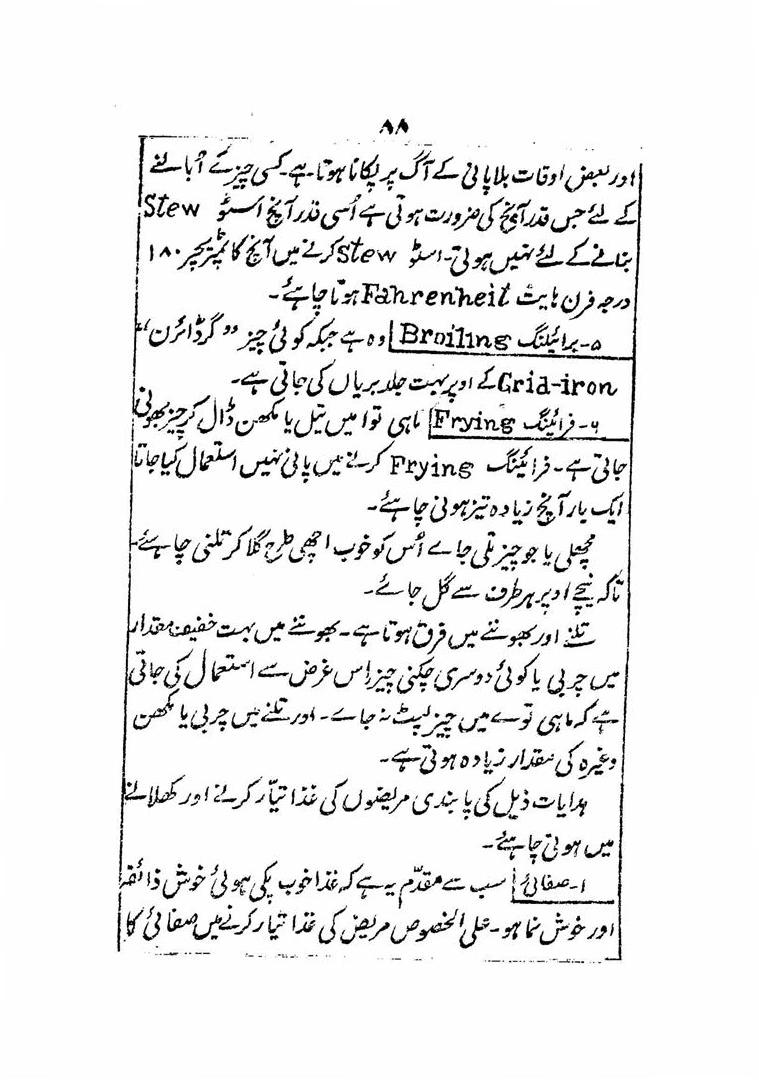 ۸۸
اور بعض اوقات بلا پانی کے آگ پر پکانا ہوتا ہے۔ کسی چیز کے اُبالنے
کے لئے جس قدر آنچ کی ضرورت ہوتی ہے اُسی قدر آنچ اسٹو Stew
بنانے کے لئے نہیں ہوتی۔ اسٹو Stew کرنے میں آنچ کا ٹمپریچر ۱۸۰
درجہ فرن ہایٹ Fahrenheit ہوتا چاہئے۔
۵۔ برائیلنگ Broiling وہ ہے جبکہ کوئی چیز "گرڈائرن"
Grid-iron کے اوپر بہت جلد بریاں کی جاتی ہے۔
۶۔ فرائینگ Frying ماہی توا میں تیل یا مکھن ڈال کر چیز بھونی
جاتی ہے۔ فرائینگ Frying کرنے میں پانی نہیں استعمال کیا جاتا
ایک بار آنچ زیادہ تیز ہونی چاہئے۔
مچھلی یا جو چیز تلی جاے اُس کو خوب اچھی طرح گلا کر تلنی چاہئے۔
تاکہ نیچے اوپر ہر طرف سے گل جائے۔
تلنے اور بھوننے میں فرق ہوتا ہے۔ بھوننے میں بہت خفیف مقدار
میں چربی یا کوئی دوسری چکنی چیز اِس غرض سے استعمال کی جاتی
ہے کہ ماہی توے میں چیز لپٹ نہ جاے۔ اور تلنے میں چربی یا مکھن
وغیرہ کی مقدار زیادہ ہوتی ہے۔
ہدایات ذیل کی پابندی مریضوں کی غذا تیّار کرنے اور کھلانے
میں ہونی چاہئے۔
۱۔ صفائی سب سے مقدّم یہ ہے کہ غذا خوب پکی ہوئی خوش ذائقہ
اور خوش نما ہو۔ علی الخصوص مریض کی غذا تیار کرنے میں صفائی کا